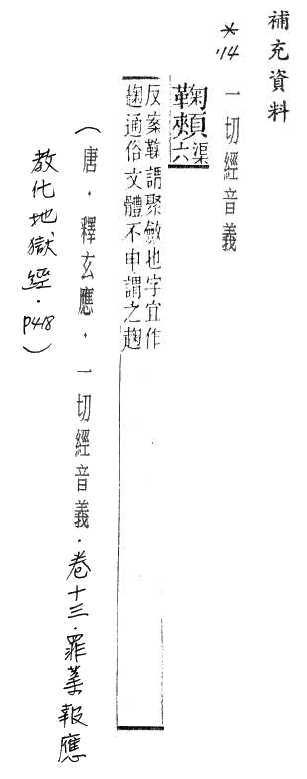 補充資料
*14 一切經音義
鞠頰渠六
反案鞠謂聚斂也字宜作
趜通俗文體不申謂之趜
(唐．釋玄應．一切經音義．卷十三．罪業報應
教化地獄經．P418)